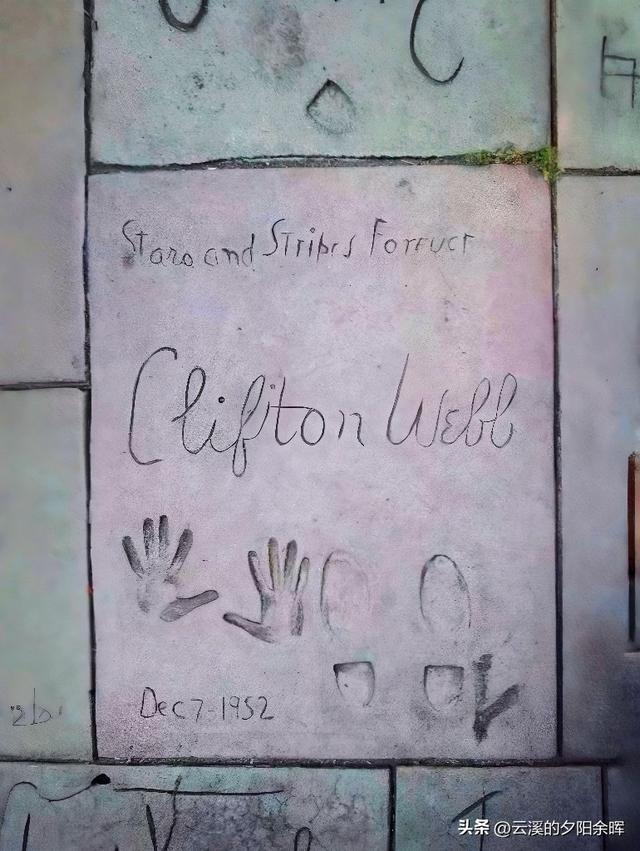 Stars and Stripes Forever
Clifton Webb
Dec 7-1952
头条 @云溪的夕阳余晖